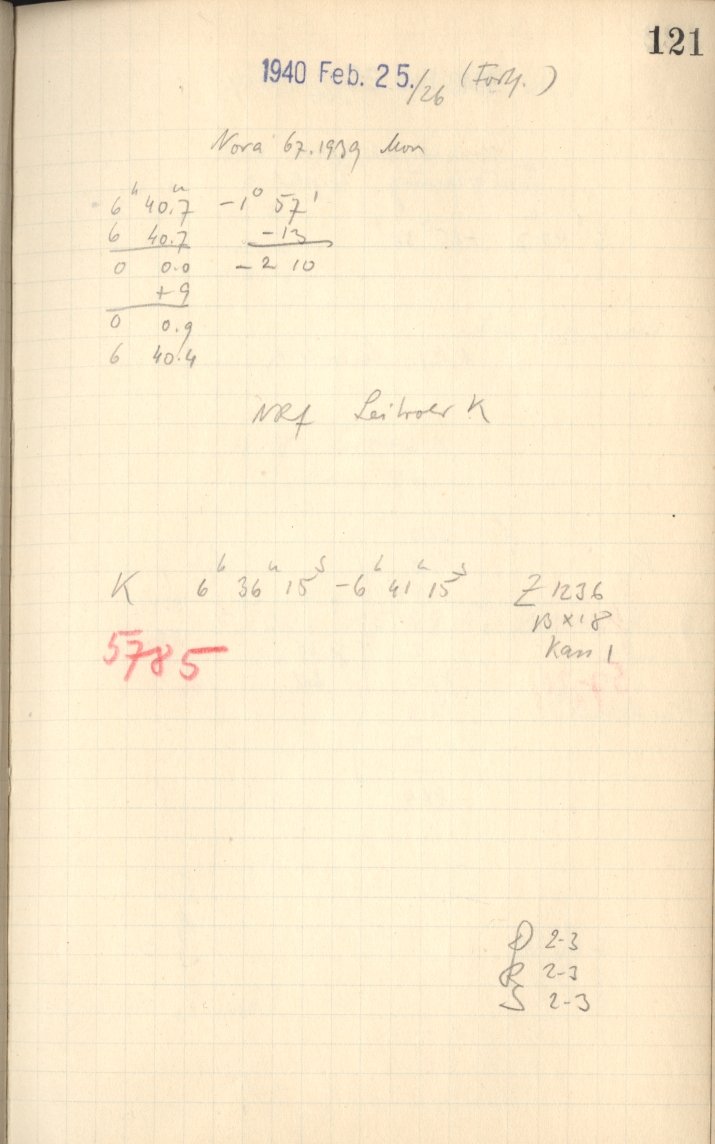 121
1940 Feb. 25./26 (Forts.)
Nova 67.1939 Mon
6h 40.7m -1° 57'
6 40.7 -13
0 0.0 -2 10
+9
0 0.9
6 40.4
K 6h 36m 15s - 6h 41m 15s Z 1236
B X 18
Kass 1
5785
D 2-3
R 2-3
S 2-3